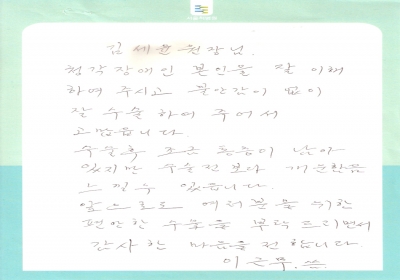 김세윤 원장님.
청각장애인 본인을 잘 이해
하여 주시고 불안감이 없이
잘 수술 하여 주어서
고맙습니다.
수술후 조금 통증이 남아
있지만 수술전 보다 개운함을
느낄 수 있습니다.
앞으로도 여러분을 위한
편안한 수술을 부탁드리면서
감사한 마음을 전합니다
이근무. 쓰.